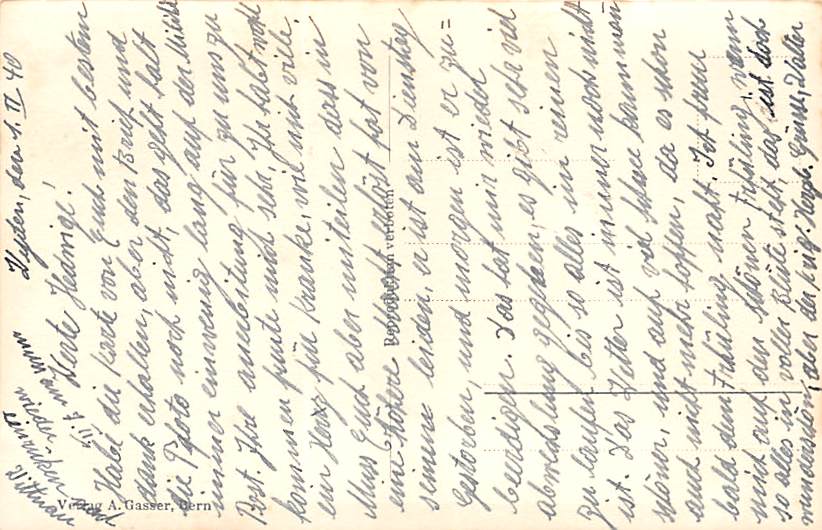 den 1. II 40
Werte Hedwige!
Habe die Karte von Euch mit bestem
dank erhalten, aber den Brief und
die Photo noch nicht, das geht halt
immer ein wenig lang auf der Militär
Post. Ihre für zu uns zu
kommen freute mich sehr, Ihr habt wohl
ein Herz für Kranke, wie nicht viele.
Muss Euch aber mitteilen dass in
eine höhere Macht erlöst hat von
seinem leiden, er ist am Dienstag
gestorben, und morgen ist er zu=
beerdigen. Das hat mir wieder
abwechslung gegeben, es gibt sehr viel
zu laufen bis so alles im reinen
ist. Das Wetter ist immer noch nicht
schöner, und auf viel schnee kann man
auch nicht mehr hoffen, da es schon
bald dem Frühling naht. Ich freue
mich auf den schönen Frühling, wenn
so alles in voller Blüte steht, das ist doch
wunderschön, aber der Krieg. Herzl. Grüsse, Walter
Verlag A. Gasser, Bern
Reproduktion verboten